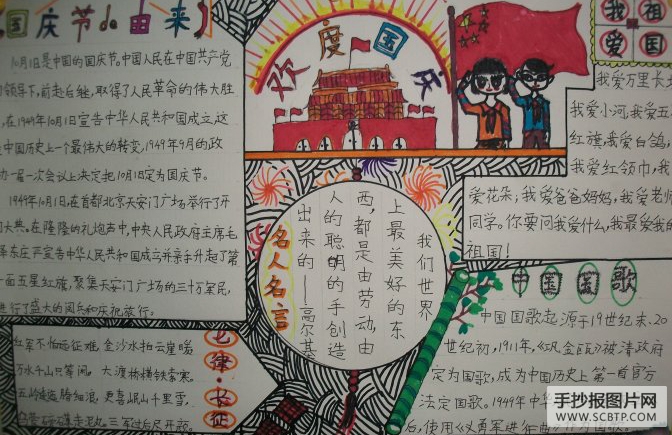 国庆节的由来
10月1日是中国的国庆节。中国人民在中国共产党
领导下,前赴后继,取得了人民革命的伟大胜
,在1949年10月1日宣告中华人民共和国成立,这
中国历史上一个最伟大的转变,1949年9月的政
一届一次会议上决定把10月1日定为国庆节。
1949年10月1日,在首都北京天安门广场举行了开
大典。在隆隆的礼炮声中,中央人民政府主席毛
泽东庄严宣告中华人民共和国成立并亲手升起了第
一面五星红旗,聚集天安门广场的三十万军民,
进行了盛大的阅兵和庆祝旅行。
欢度国庆
我祖
爱国
我爱万里长
我爱小河,我爱五
红旗,我爱白鸽,
我爱红领巾,我
爱花朵;我爱爸爸妈妈,我爱老
同学。你要问我爱什么,我最爱我的
祖国!
名人名言
我们世界
上最美好的东
西,都是由劳动,由
人的聪明的手创造
出来的——高尔基
七律·长征
红军不怕远征难,金沙水拍云崖暖
万水千山只等闲。大渡桥横铁索寒。
五岭逶迤腾细浪,更喜岷山千里雪,
三军过后尽开颜。
中国国歌
中国国歌起源于19世纪末、20
世纪初,1911年,《巩金瓯》被清政府
定为国歌,成为中国历史上第一首官方
法定国歌。1949年中华
后,使用《义勇军进行曲》
手抄报图片网
WWW.SCBTP.COM